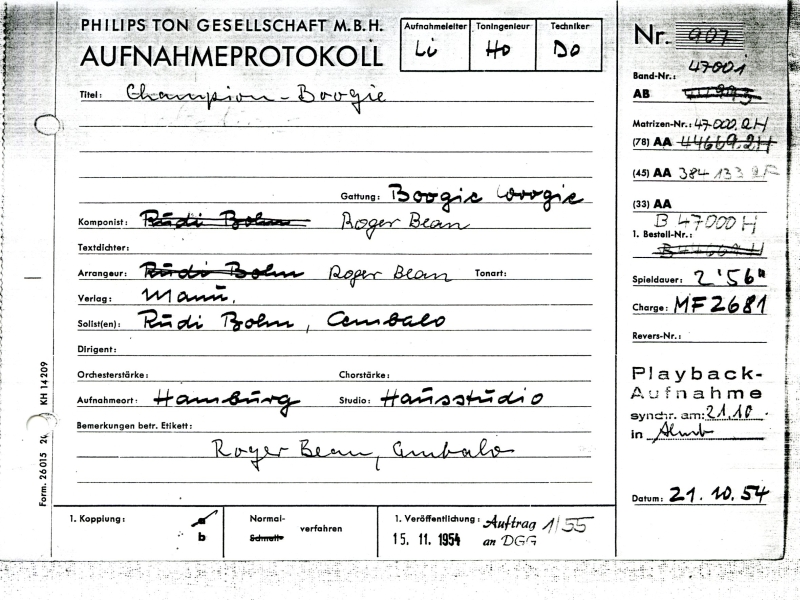 PHILIPS TON GESELLSCHAFT M.B.H.
AUFNAHMEPROTOKOLL
Aufnahmeleiter Toningenieur Techniker
Li Ho Do
Nr. 907
Band-Nr.: 47001
AB
Titel: Champion-Boogie
Matrizen-Nr.: 47000.2H
(78) AA 44669.2H
(45) AA 384 133 2F
(33) AA
Gattung: Boogie woogie
B 47000 H
Komponist: Rudi Bohn Roger Bean
1. Bestell-Nr.:
Textdichter:
Arrangeur: Rudi Bohn Roger Bean Tonart:
Spieldauer: 2'56"
Verlag: Mann.
Charge: MF 2681
Solist(en): Rudi Bohn, Cembalo
Revers-Nr.:
Dirigent:
Orchesterstärke: Chorstärke:
Playback-
Aufnahme
Aufnahmeort: Hamburg Studio: Hausstudio
synchr. am: 21.10.
in
Bemerkungen betr. Etikett:
Roger Bean, Cembalo
Datum: 21.10.54
Form. 26015 KH 14209
1. Kopplung: a
b
Normal-
Schnell-
verfahren
1. Veröffentlichung: Auftrag 1/55
15. 11. 1954 an DGG